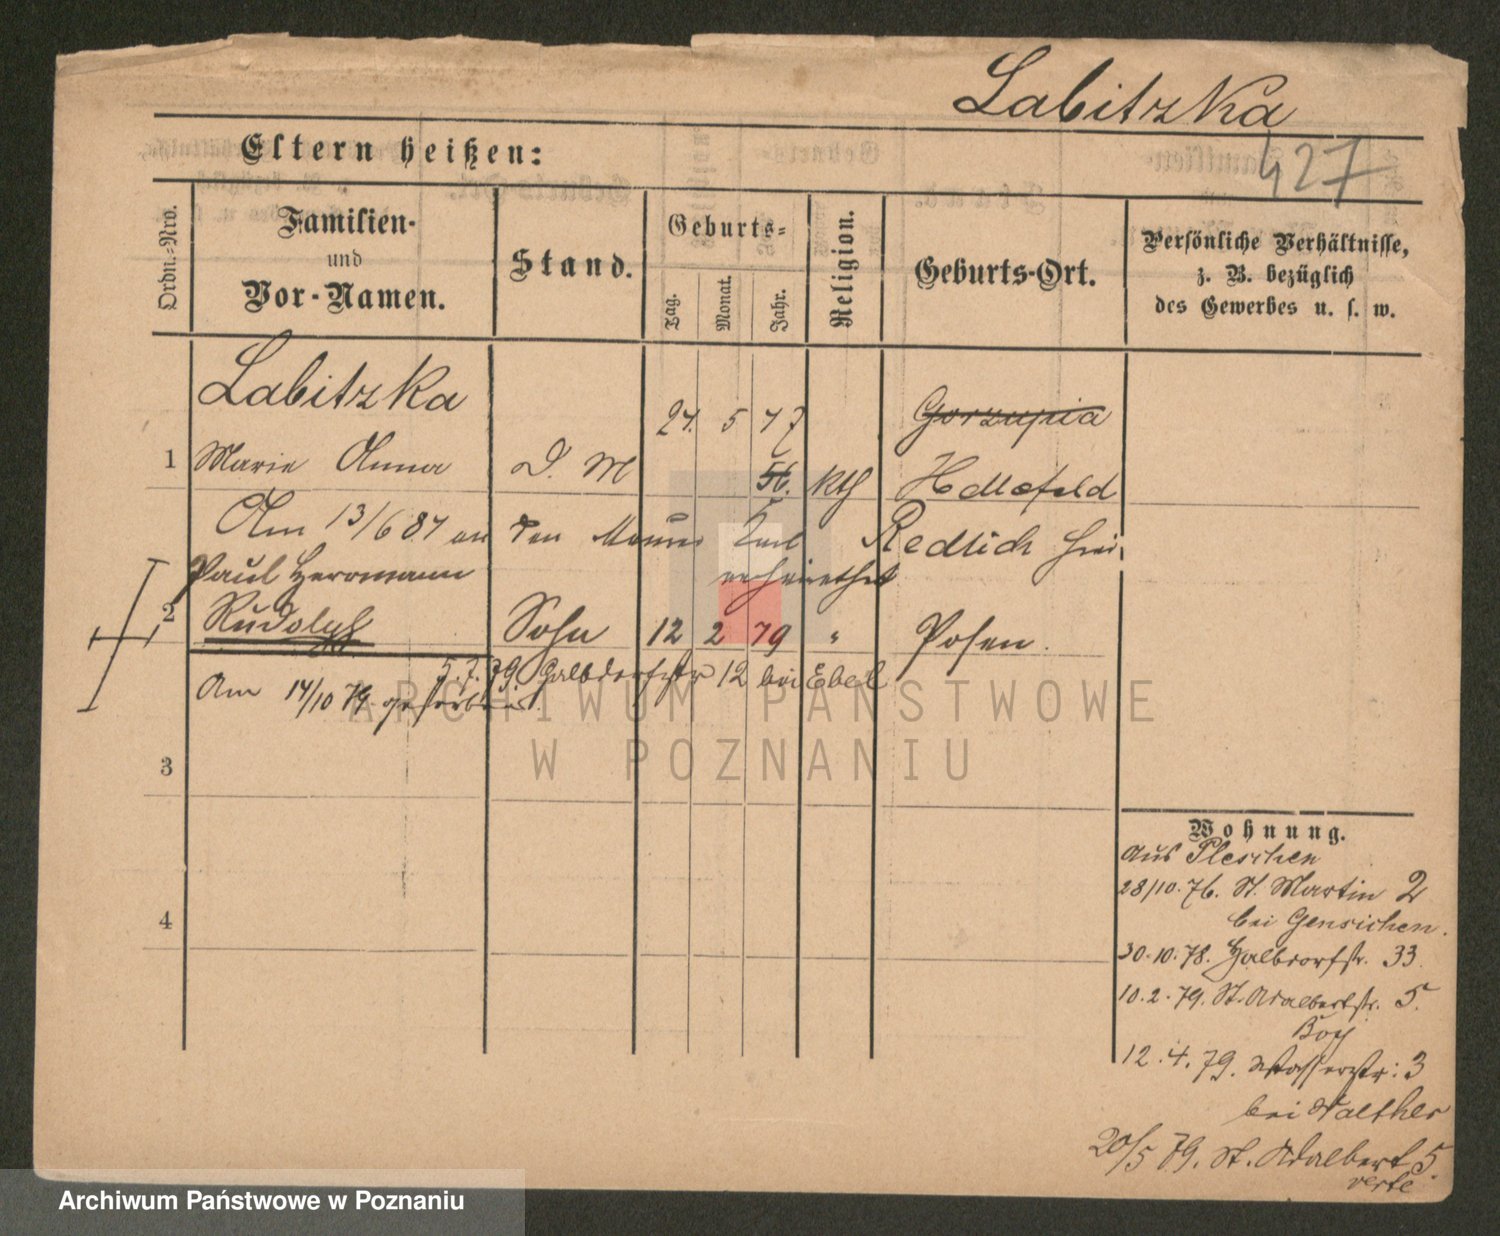 Labitzka
427
Eltern heißen:
Ordn.-Nro.
Familien-
und
Vor-Namen.
Stand.
Geburts-
Tag.
Monat.
Jahr.
Religion.
Geburts-Ort.
Persönliche Verhältnisse,
z. B. bezüglich
des Gewerbes u. s. w.
Labitzka
24. 5 47
Gorzupia
1 Marie Anna D. M 56. kth
Am 13/6 87 an den Maurer Karl Redlich
Paul Herrmann verheirathet
2 Rudolph Sohn 12 2 79 " Posen.
5.7.79. Halbdorfstr 12 bei Ebel
Am 14/10 79 gestorben.
3
4
Wohnung.
aus Pleschen
28/10.76. St. Martin 2
bei Gensichen.
30.10.78. Halbdorfstr. 33.
10.2.79. St. Adalbertstr. 5.
12.4.79. Wasserstr: 3
bei Walther
20/5 79. St. Adalbert 5.
verte
ARCHIWUM PAŃSTWOWE
W POZNANIU
Archiwum Państwowe w Poznaniu